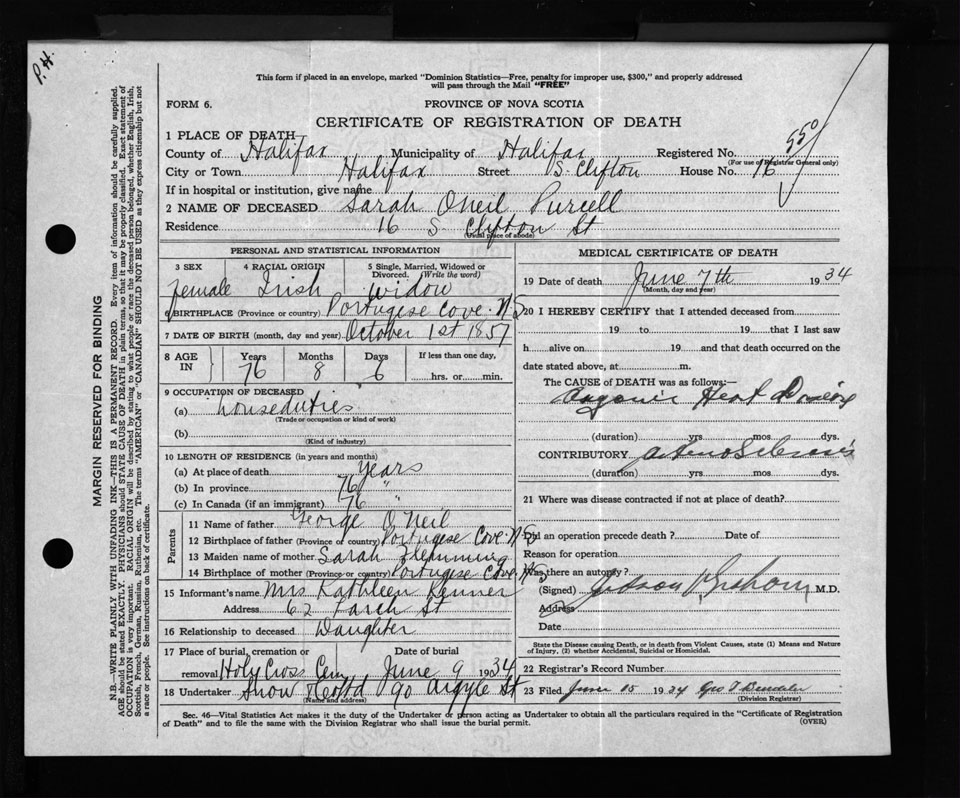 P.H.
This form if placed in an envelope, marked "Dominion Statistics—Free, penalty for improper use, $300," and properly addressed
will pass through the Mail "FREE"
FORM 6.
PROVINCE OF NOVA SCOTIA
CERTIFICATE OF REGISTRATION OF DEATH
550
1 PLACE OF DEATH—
County of Halifax Municipality of Halifax Registered No.
(For use of Registrar General only)
City or Town Halifax Street S. Clifton House No. 16
If in hospital or institution, give name
2 NAME OF DECEASED Sarah Oneil Purcell
Residence 16 S Clifton St
(Usual place of abode)
PERSONAL AND STATISTICAL INFORMATION
3 SEX 4 RACIAL ORIGIN 5 Single, Married, Widowed or Divorced. (Write the word)
female Irish widow
6 BIRTHPLACE (Province or country) Portugese Cove. N S
7 DATE OF BIRTH (month, day and year) October 1st 1857
8 AGE IN Years Months Days If less than one day,
76 8 6 hrs. or min.
9 OCCUPATION OF DECEASED
(a) houseduties
(Trade or occupation or kind of work)
(b)
(Kind of industry)
10 LENGTH OF RESIDENCE (in years and months)
(a) At place of death years
(b) In province 76 "
(c) In Canada (if an immigrant) 76 "
Parents
11 Name of father George O'Neil
12 Birthplace of father (Province or country) Portugese Cove. N S
13 Maiden name of mother Sarah Flemming
14 Birthplace of mother (Province or country) Portugese Cove. N S
15 Informant's name Mrs Kathleen Kenner
Address 62 Larch St
16 Relationship to deceased Daughter
17 Place of burial, cremation or removal Date of burial
Holy Cross Cem June 9 1934
18 Undertaker Snow & Co Ltd 90 Argyle St
(Name and address)
MEDICAL CERTIFICATE OF DEATH
19 Date of death June 7th 1934
(Month, day and year)
20 I HEREBY CERTIFY that I attended deceased from
19 to 19 that I last saw
h alive on 19 and that death occurred on the
date stated above, at m.
The CAUSE of DEATH was as follows:—
Organic Heart Disease
(duration) yrs mos. dys.
CONTRIBUTORY Arterio Sclerosis
(duration) yrs mos. dys.
21 Where was disease contracted if not at place of death?
Did an operation precede death? Date of
Reason for operation
Was there an autopsy?
(Signed) Judson V Graham M.D.
Address
Date
State the Disease causing Death, or in death from Violent Causes, state (1) Means and Nature
of Injury, (2) whether Accidental, Suicidal or Homicidal.
22 Registrar's Record Number
23 Filed June 15 1934 Geo T
(Division Registrar)
Sec. 46—Vital Statistics Act makes it the duty of the Undertaker or person acting as Undertaker to obtain all the particulars required in the "Certificate of Registration
of Death" and to file the same with the Division Registrar who shall issue the burial permit.
(OVER)
MARGIN RESERVED FOR BINDING
N.B.—WRITE PLAINLY WITH UNFADING INK—THIS IS A PERMANENT RECORD. Every item of information should be carefully supplied.
AGE should be stated EXACTLY. PHYSICIANS should STATE CAUSE OF DEATH in plain terms, so that it may be properly classified. Exact statement of
OCCUPATION is very important. RACIAL ORIGIN will be described by stating to what people or race the deceased person belonged, whether English, Irish,
Scottish, French, German, Russian, Ruthenian, etc. The terms "AMERICAN" or "CANADIAN" SHOULD NOT BE USED as they express citizenship but not
a race or people. See instructions on back of certificate.